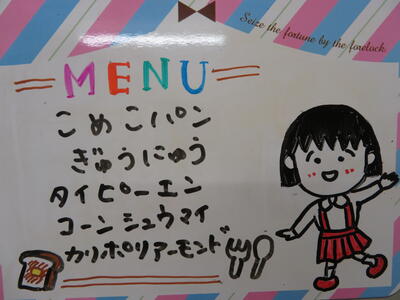 Seize the fortune by the forelock.
MENU
こめこパン
ぎゅうにゅう
タイピーエン
コーンシュウマイ
カリポリアーモンド